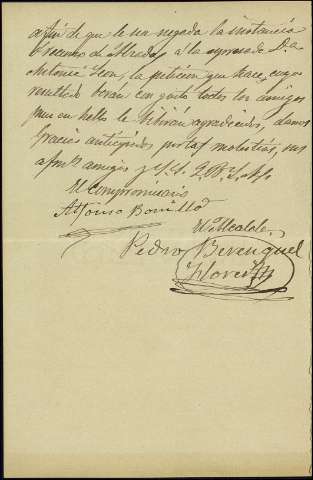 a fin de que le sea negada la instancia
o recurso de Alzada á la espresada D.a
Antonia Leon, la peticion que hace, cuyo
resultado veran con gusto todos los amigos
pues en hello le vivirán agradecidos, damos
Gracias anticipadas por tas molestias, sus
afmos amigos y S. S. Q. B. S. M.
El Compromisario
Alfonso Bonillo
El Alcalde,
Pedro Berenguel